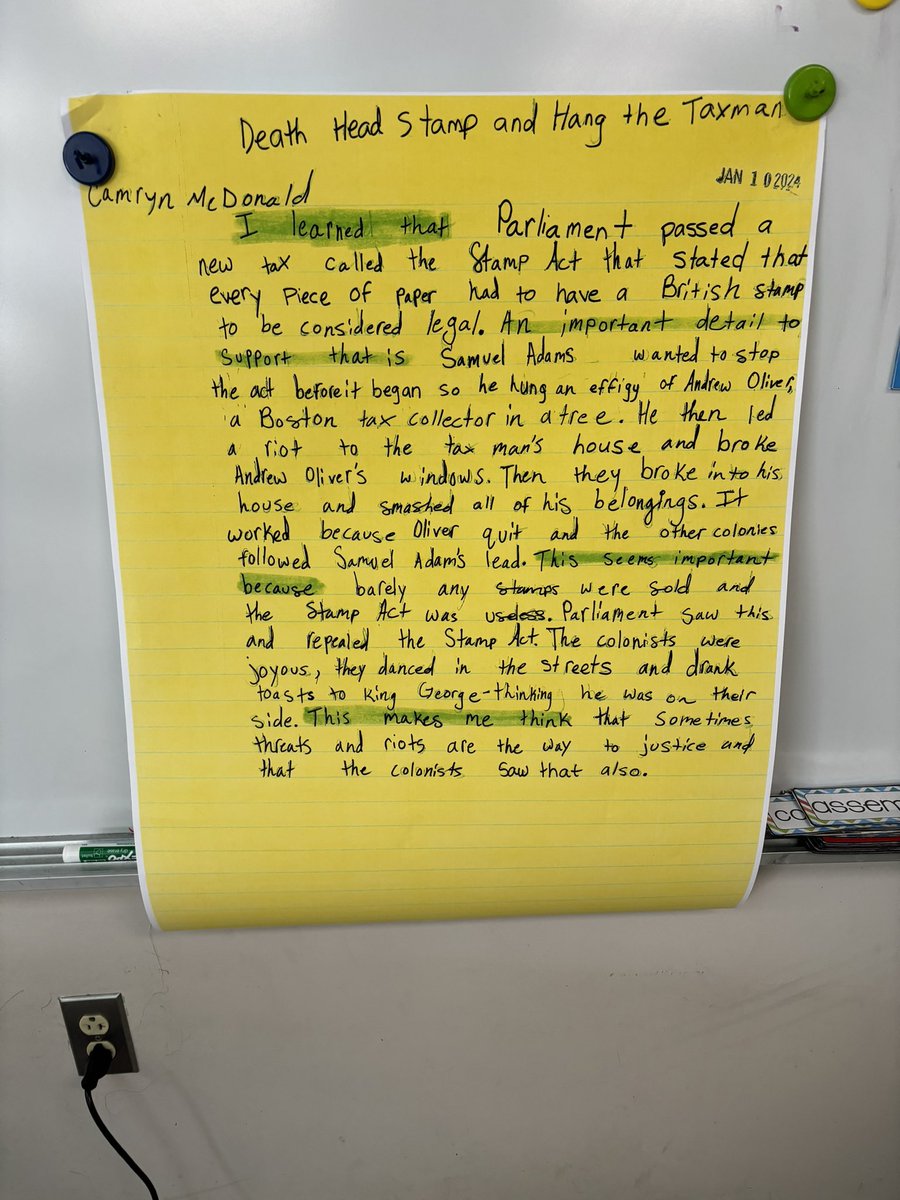 Death Head Stamp and Hang the Taxman
JAN 10 2024
Camryn McDonald
I learned that Parliament passed a
new tax called the Stamp Act that stated that
every piece of paper had to have a British stamp
to be considered legal. An important detail to
support that is Samuel Adams wanted to stop
the act before it began so he hung an effigy of Andrew Oliver,
a Boston tax collector in a tree. He then led
a riot to the tax man's house and broke
Andrew Oliver's windows. Then they broke into his
house and smashed all of his belongings. It
worked because Oliver quit and the other colonies
followed Samuel Adam's lead. This seems important
because barely any stamps were sold and
the Stamp Act was useless. Parliament saw this
and repealed the Stamp Act. The colonists were
joyous, they danced in the streets and drank
toasts to King George-thinking he was on their
side. This makes me think that sometimes
threats and riots are the way to justice and
that the colonists saw that also.
assem
EXPO